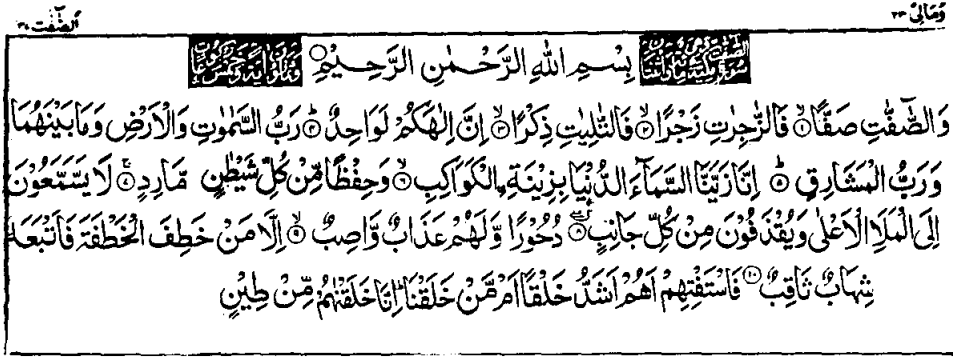 ومالى ٢٣ الصّٰفّٰت ٣٧
بِسْمِ اللهِ الرَّحْمٰنِ الرَّحِيْمِ
وَالصّٰٓفّٰتِ صَفًّا ۙ۱ فَالزّٰجِرٰتِ زَجْرًا ۙ۲ فَالتّٰلِيٰتِ ذِكْرًا ۙ۳ اِنَّ اِلٰهَكُمْ لَوَاحِدٌ ؕ۴ رَبُّ السَّمٰوٰتِ وَالْاَرْضِ وَمَا بَيْنَهُمَا
وَرَبُّ الْمَشَارِقِ ؕ۵ اِنَّا زَيَّنَّا السَّمَآءَ الدُّنْيَا بِزِيْنَةِ ۨالْكَوَاكِبِ ۙ۶ وَحِفْظًا مِّنْ كُلِّ شَيْطٰنٍ مَّارِدٍ ۚ۷ لَا يَسَّمَّعُوْنَ
اِلَى الْمَلَاِ الْاَعْلٰى وَيُقْذَفُوْنَ مِنْ كُلِّ جَانِبٍ ۸ دُحُوْرًا وَّلَهُمْ عَذَابٌ وَّاصِبٌ ۙ۹ اِلَّا مَنْ خَطِفَ الْخَطْفَةَ فَاَتْبَعَهٗ
شِهَابٌ ثَاقِبٌ ۱۰ فَاسْتَفْتِهِمْ اَهُمْ اَشَدُّ خَلْقًا اَمْ مَّنْ خَلَقْنَا ؕ اِنَّا خَلَقْنٰهُمْ مِّنْ طِيْنٍ